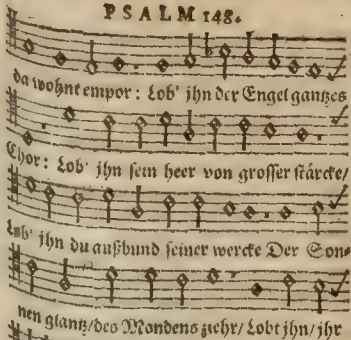 PSALM 148.
da wohnt empor: Lob' jhn der Engel gantzes
Chor: Lob' jhn sein heer von grosser stärcke/
Lob' jhn du außbund seiner wercke Der Son-
nen glantz/des Mondens ziehr/ Lobt jhn/ jhr